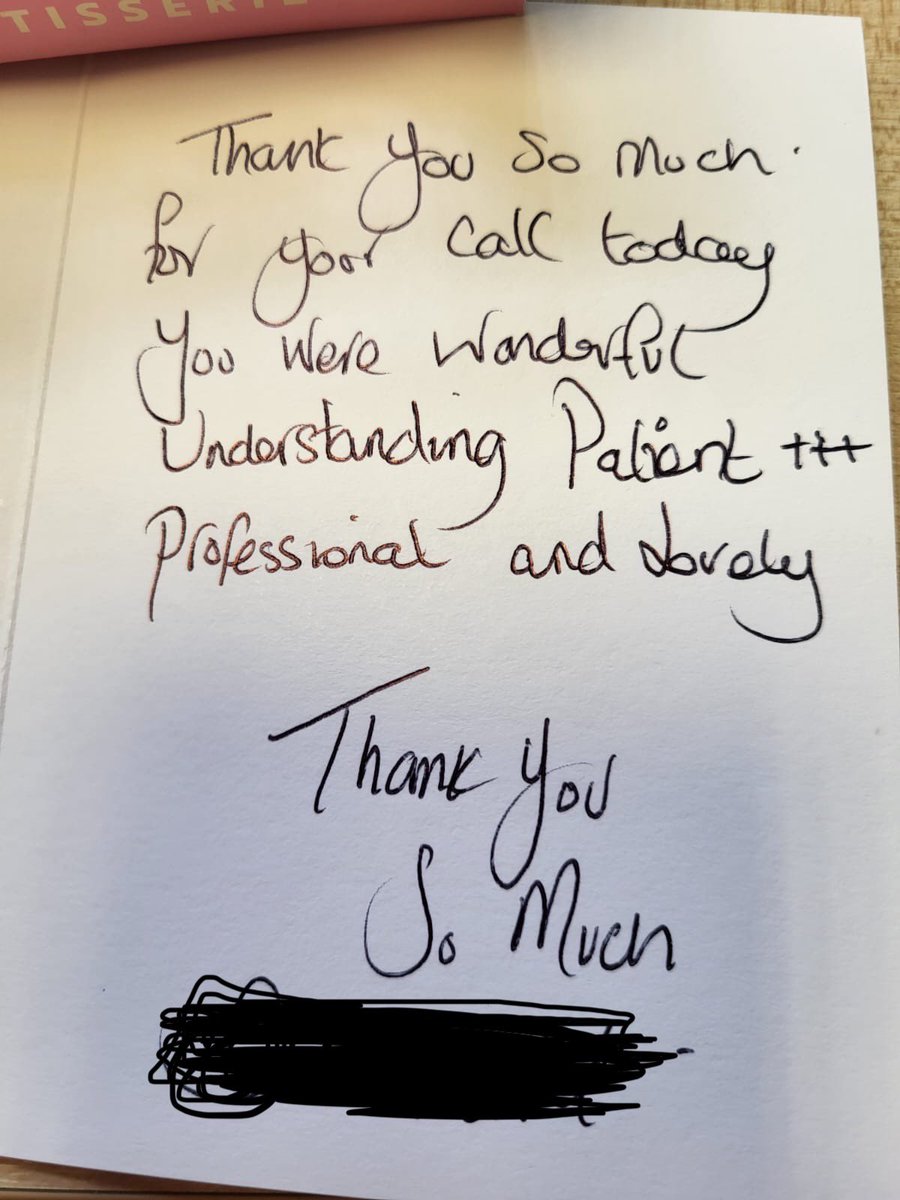 TISSERIE
Thank you so much.
for your call today
You were wonderful
Understanding Patient +++
Professional and lovely
Thank you
So Much